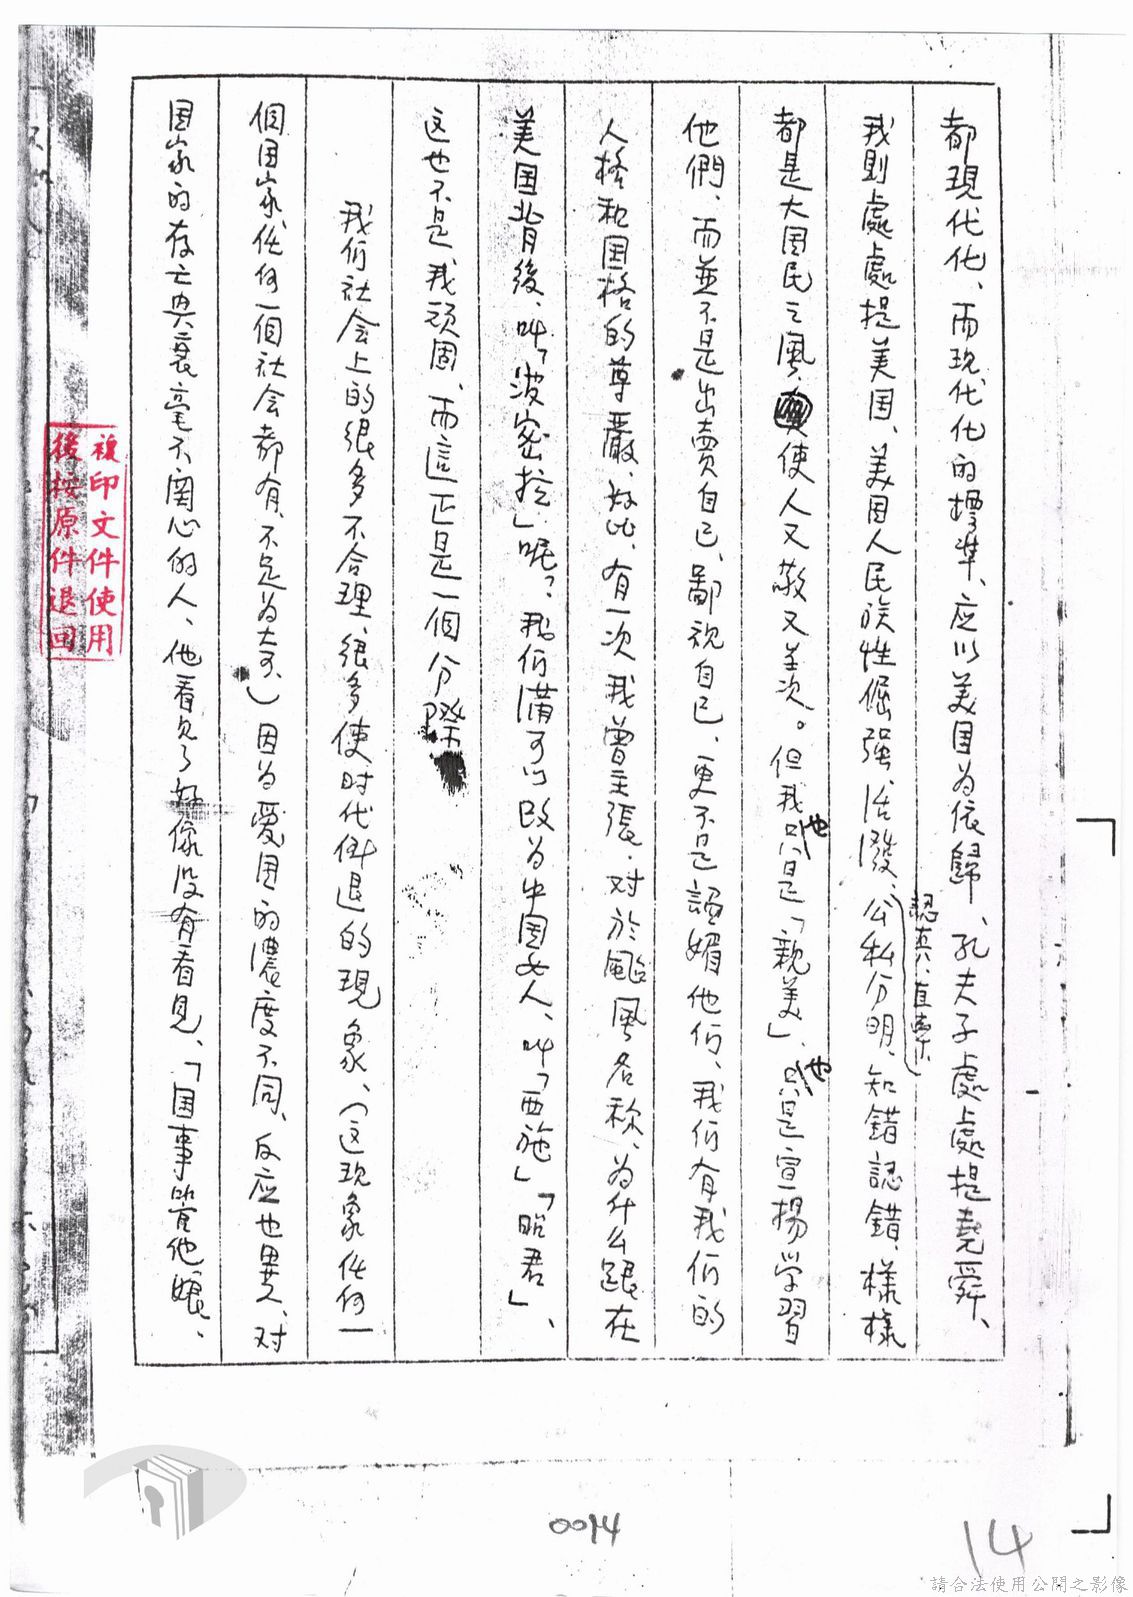 都現代化、而現代化的標準、应以美国為依歸、孔夫子處處提堯舜、
我則處處提美国、美国人民族性倔强、活潑、公私分明、知錯認錯、樣樣
認真、直率、
都是大国民之風、使人又敬又羡。但我只是「親美」、只是宣揚学習
也
也
他們、而並不是出賣自己、鄙視自己、更不是諂媚他们、我们有我们的
人格和国格的尊嚴、為此、有一次我曾主張、对於颱風名称、為什么跟在
美国背後、叫「波密拉」呢？我们滿可以改為中国女人、叫「西施」「昭君」、
这也不是我頑固、而這正是一個分際
我们社会上的很多不合理、很多使时代倒退的現象、（这現象任何一
個国家任何一個社会都有、不足為大奇、）因為愛国的濃度不同、反应也異、对
国家的存亡興衰毫不関心的人、他看見了好像没有看見、「国事管他娘、
複印文件使用
後按原件退回
0014
14
請合法使用公開之影像